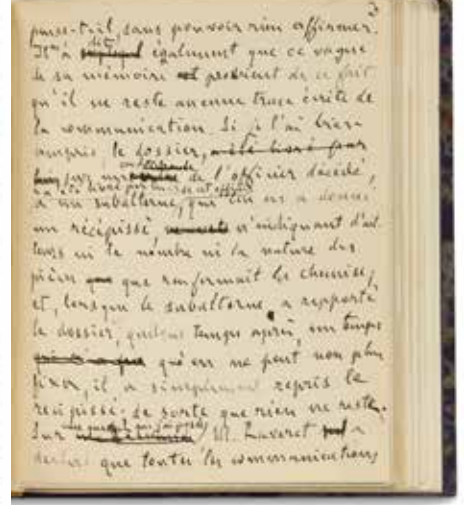 3
pense-t-il, sans pouvoir rien affirmer.
Il m'a dit également que ce vague
de sa mémoire provient de ce fait
qu'il ne reste aucune trace écrite de
la communication. Si je l'ai bien
compris, le dossier, a été livré par
sur un ordre de l'officier décédé,
a été livré par lui
à un subalterne, qui lui en a donné
un récépissé n'indiquant d'ail-
leurs ni le nombre ni la nature des
pièces que renfermait la chemise,
et, lorsque le subalterne a rapporté
le dossier, quelque temps après, un temps
qu'on ne peut non plus
fixer, il a simplement repris le
récépissé: de sorte que rien ne reste.
Sur une question que j'ai posée, M. Laveret a
déclaré que toutes les communications